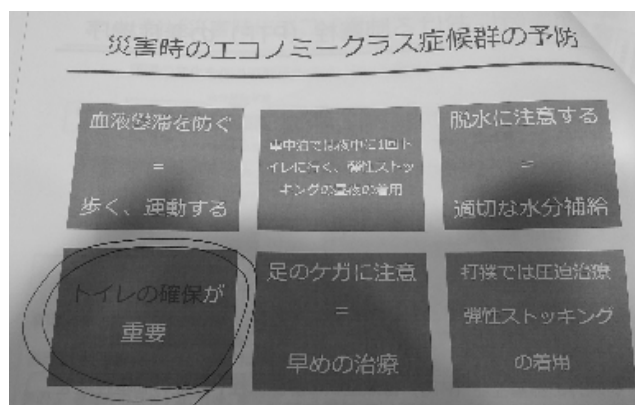 災害時のエコノミークラス症候群の予防
血液鬱滞を防ぐ
=
歩く、運動する
車中泊では夜中に1回ト
イレに行く、弾性ストッ
キングの昼夜の着用
脱水に注意する
=
適切な水分補給
トイレの確保が
重要
足のケガに注意
=
早めの治療
打撲では圧迫治療
弾性ストッキング
の着用